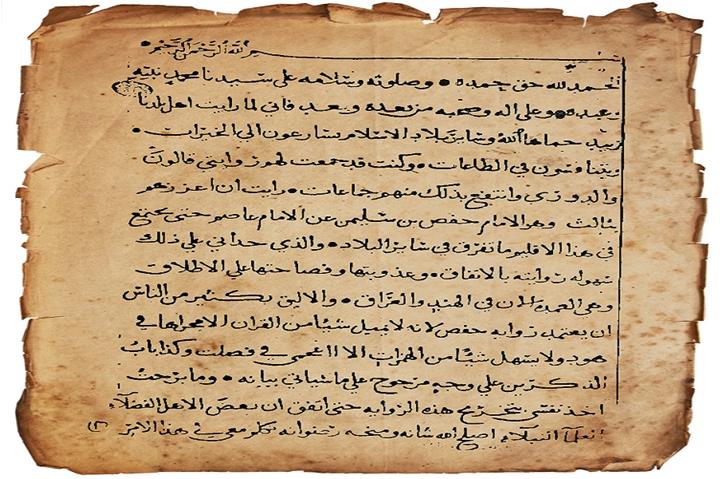 بسم الله الرحمن الرحيم
الحمد لله حق حمده وصلوته وسلامه على سيدنا محمد نبيه
وعبده وعلى اله وصحبه من بعده وبعد فاني لما رايت اهل بلدنا
زبيد حماها الله وساير بلاد الاسلام يسارعون الي الخيرات
ويتنافسون في الطاعات وكنت قد جمعت لهم روايتي قالون
والدوري وانتفع بذلك منهم جماعات رايت ان اعززهم
بثالث وهو الامام حفص بن سليمن عن الامام عاصم حتى يجتمع
في هذا الاقليم ما تفرق في ساير البلاد والذي حداني علي ذلك
سهولة روايته بالاتفاق وعذوبتها وفصاحتها علي الاطلاق
وهي العمدة الان في الهند والعراق والاليق بكثير من الناس
ان يعتمد رواية حفص لانه لا يميل شيا من القران الا مجراها في
هود ولا يسهل شيا من الهمزات الا ااعجمي في فصلت وكذا باب
الذكرين علي وجه مرجوح علي ما سياتي بيانه وما برحت
اخذ نفسي بتخريج هذه الرواية حتى اتفق ان بعض الاهل الفضلاء
النبلاء اصلح الله شانه ومنحه رضوانه تكلم معي في هذا الامر